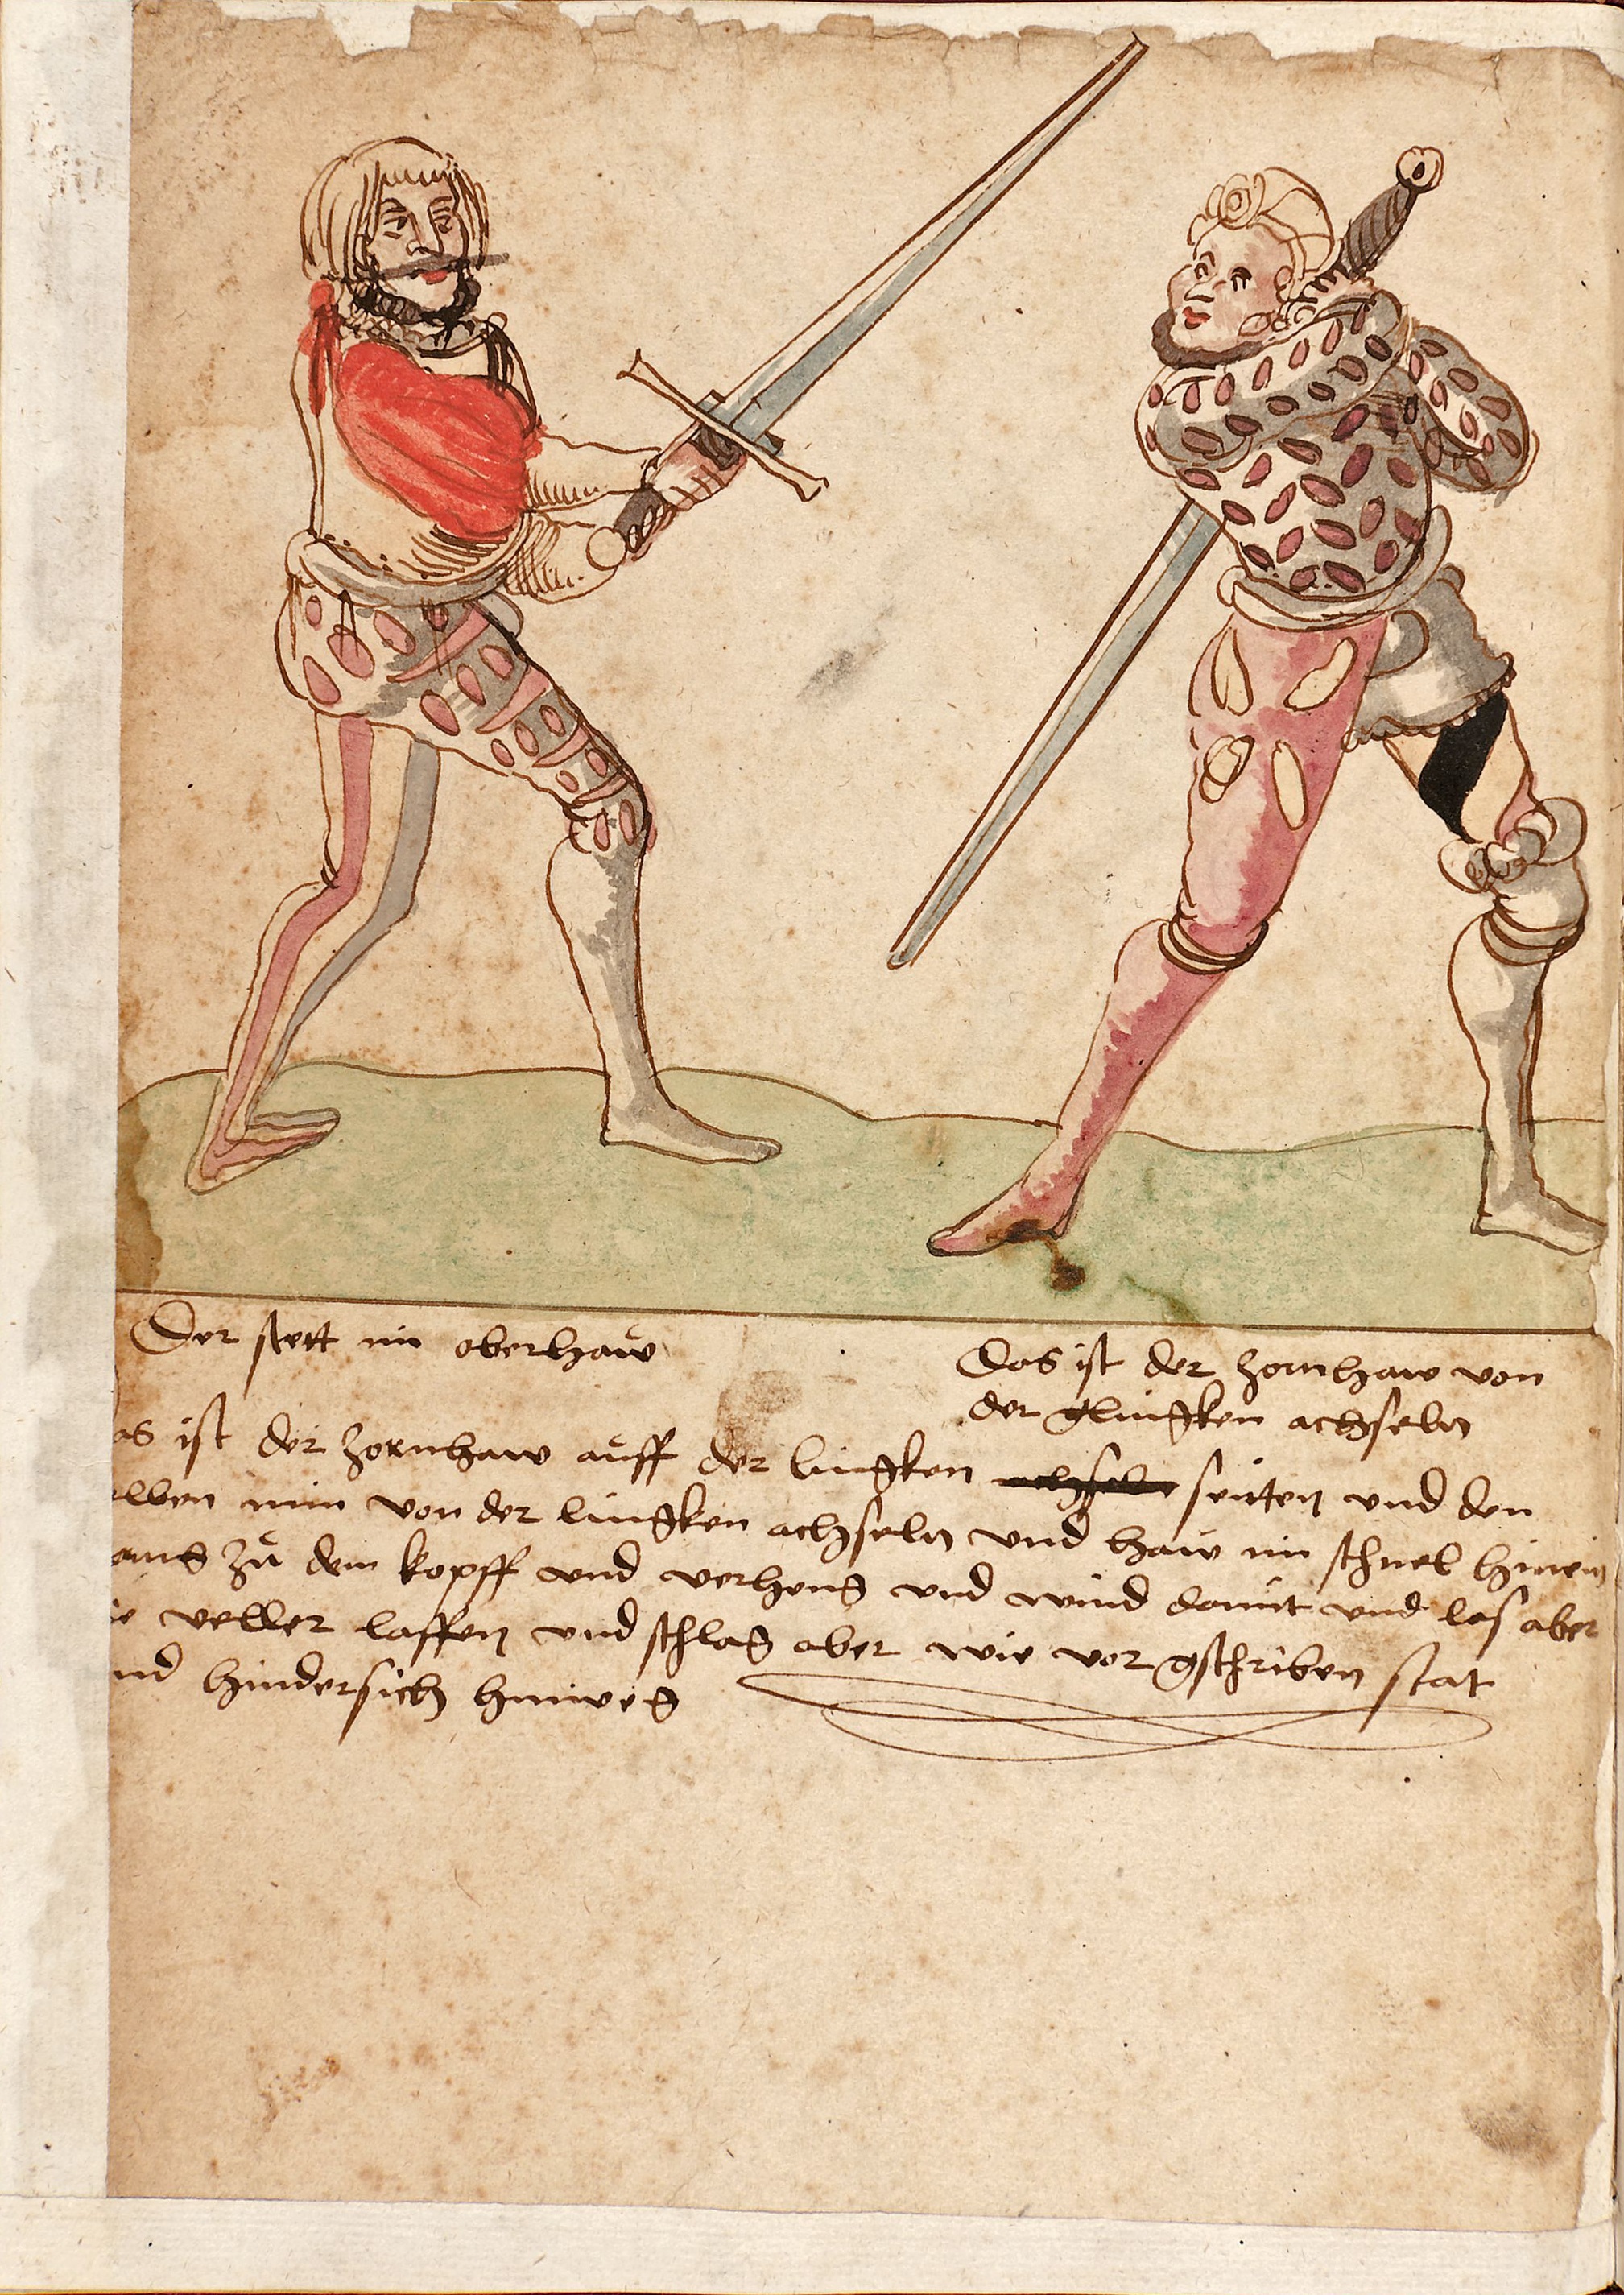 Der stett im oberhaw
Das ist der zornhaw von
der glingken achseln
as ist der zornhaw auff der lingken achseln seitten und den
elben nim von der lingken achseln und haw im schnel hinein
zu dem kopff und verheng und wind damit und las aber
veller lauffen und schlag aber wie vor gschriben stat
nd hindersich hinweg